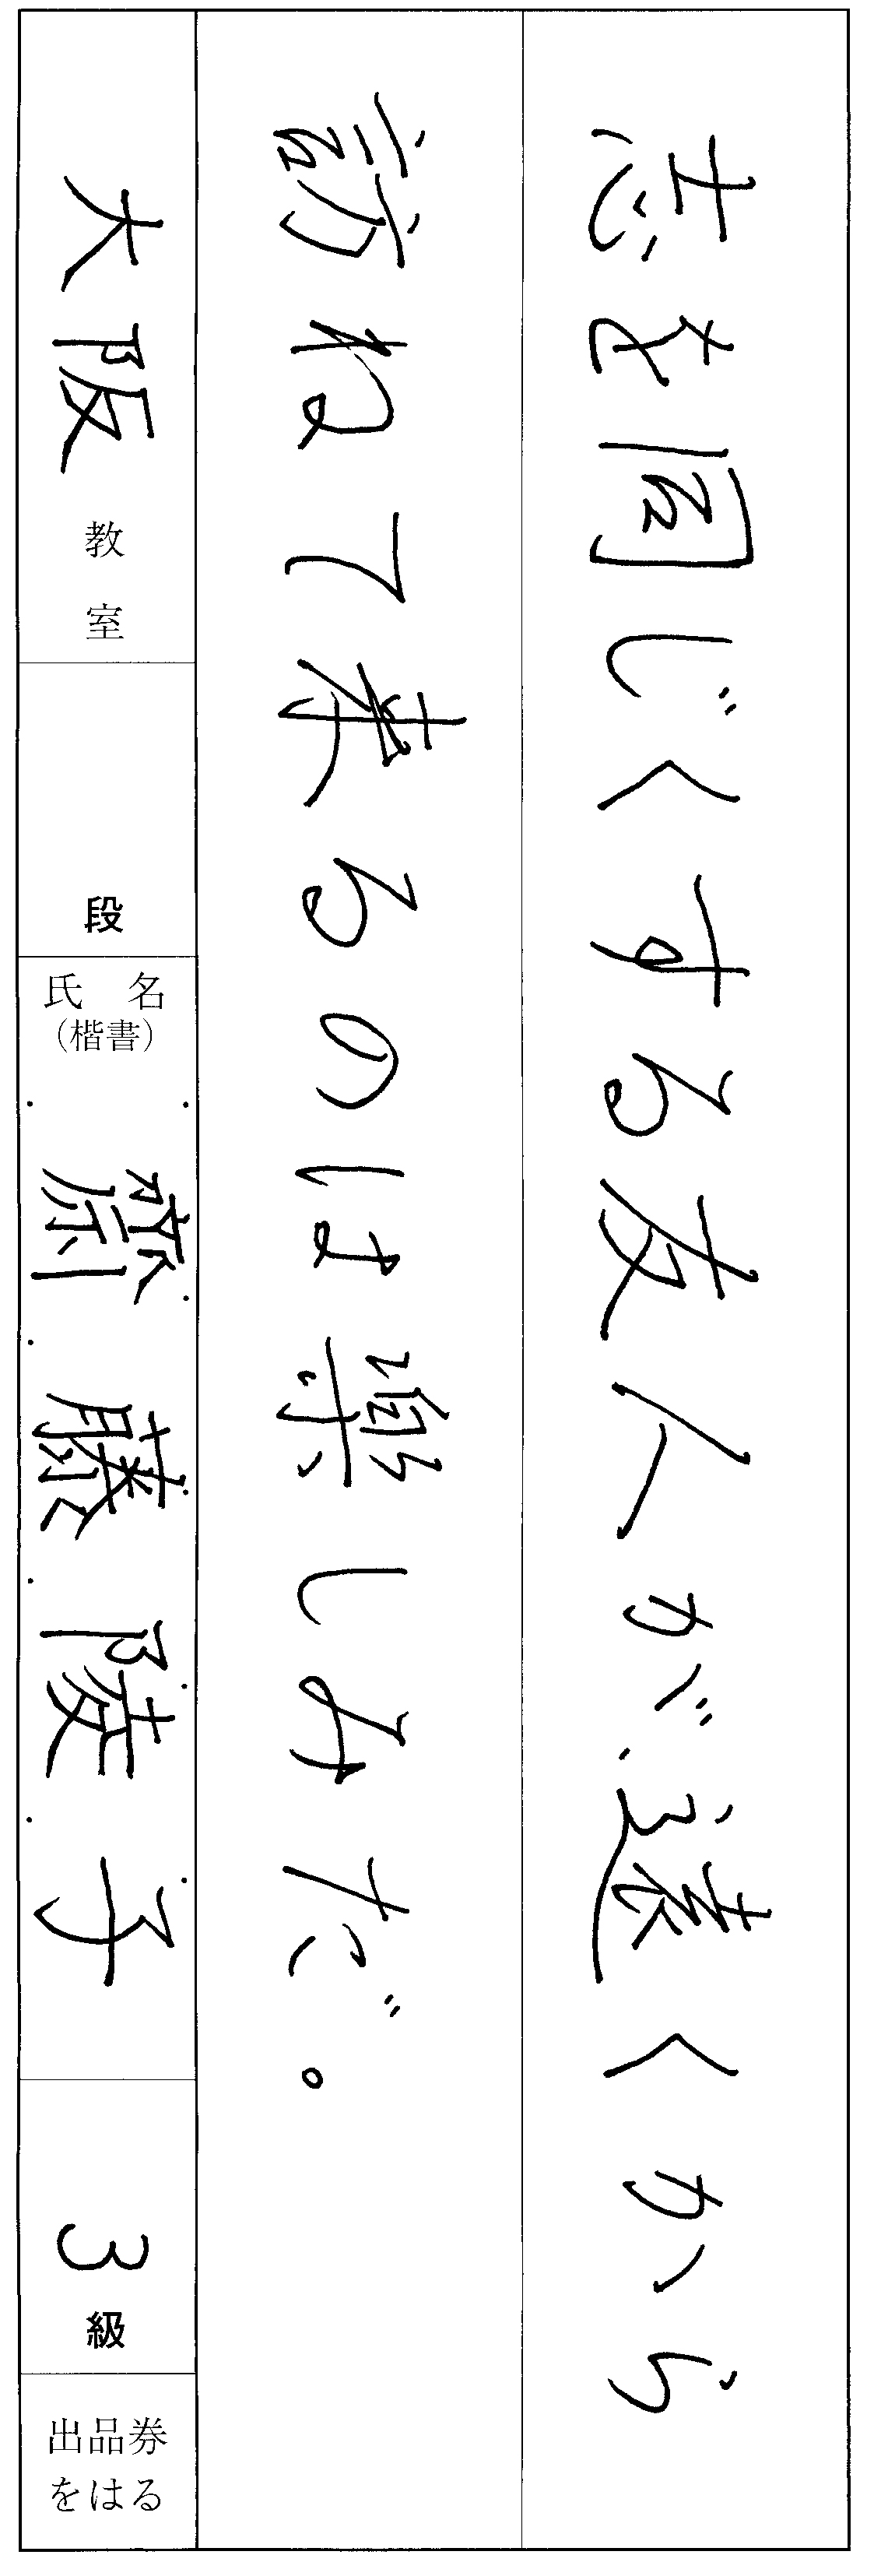 志を同じくする友人が遠くから
訪ねて来るのは楽しみだ。
大阪教室
段
氏名
(楷書)
齋藤陵子
3級
出品券
をはる